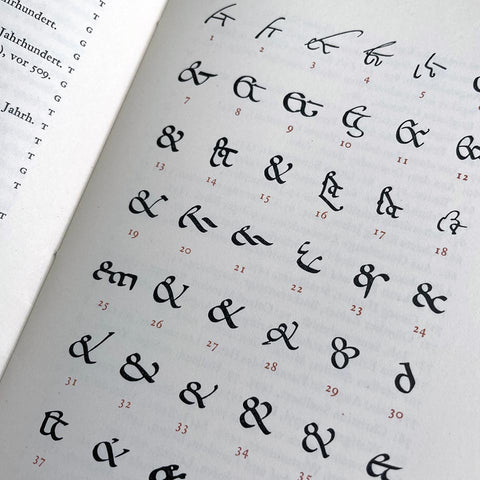 hrhundert. T
T
G
G
Jahrhundert. T
), vor 509. G
G
T
Jahrh. T
T
T
G
G
T
T
& & & & &
1 2 3 4 5
& & & & & &
7 8 9 10 11 12
& & & & & &
13 14 15 16 17 18
& & & & & &
19 20 21 22 23 24
& & & & & &
25 26 27 28 29 30
& & & & & &
31 32 33 34 35
& & &
37